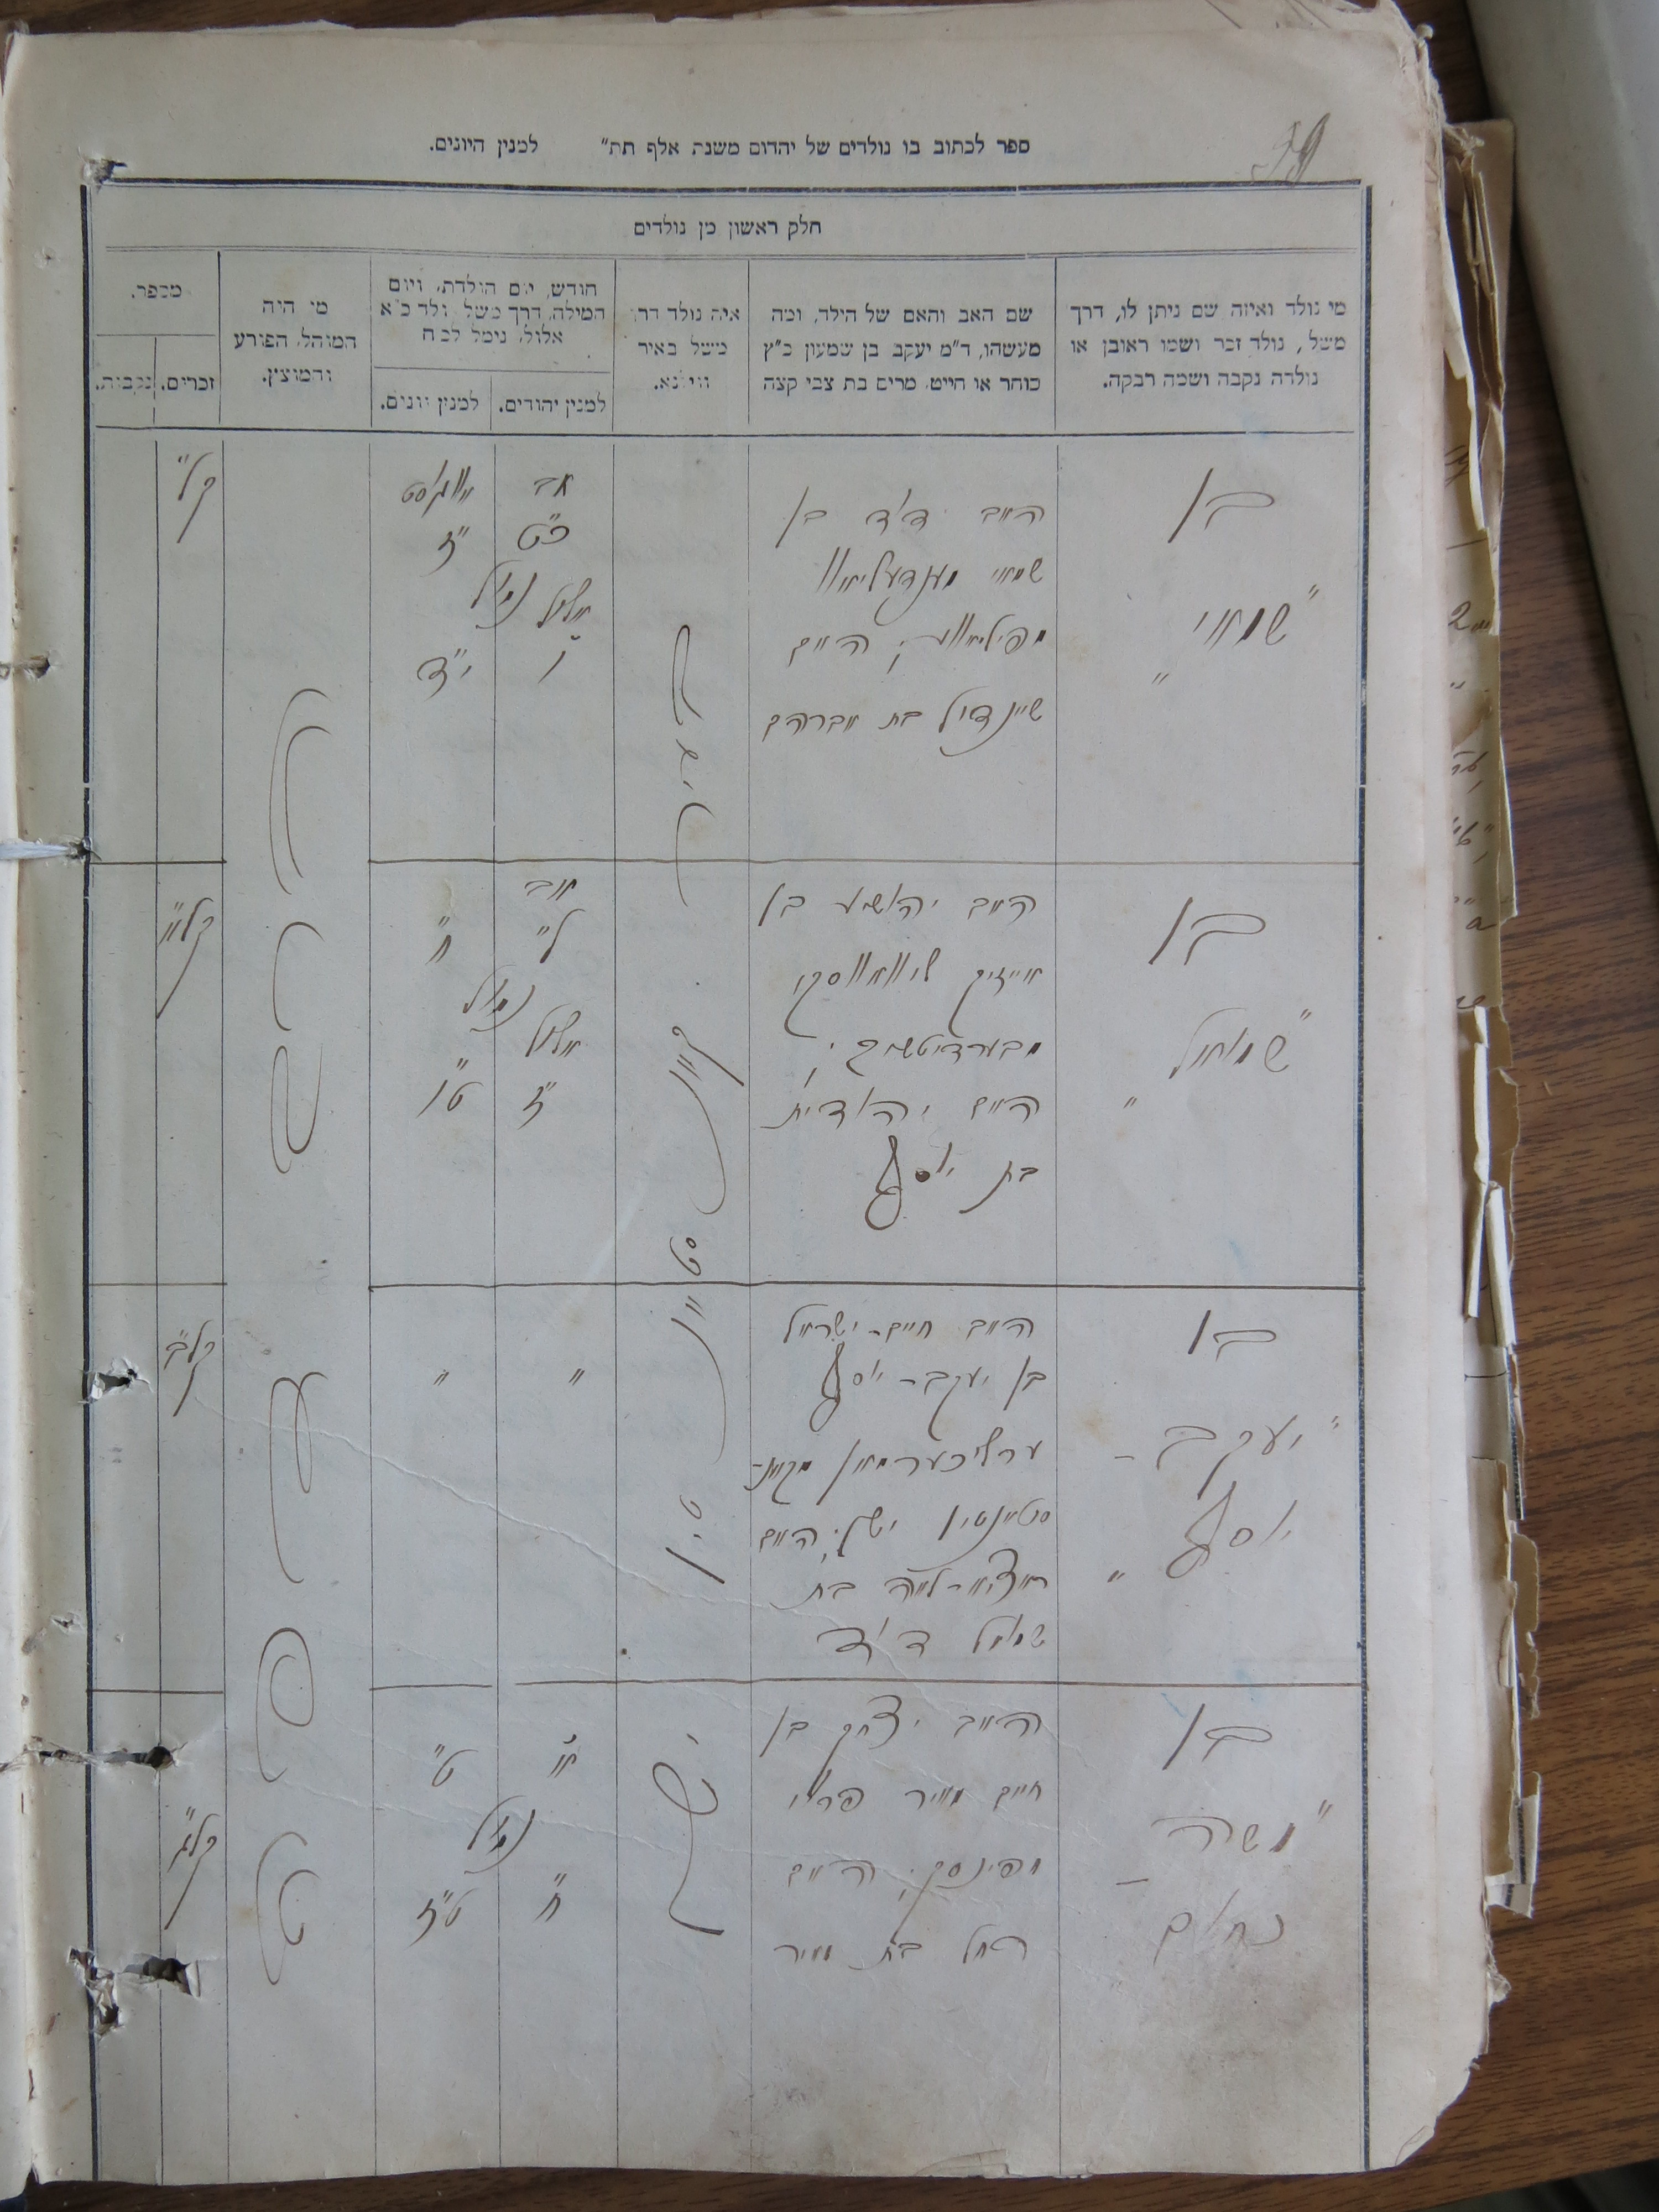 79
ספר לכתוב בו נולדים של יהדום משנת אלף תת״ למנין היונים.
חלק ראשון מן נולדים
מי נולד ואיזה שם ניתן לו, דרך
משל, נולד זכר ושמו ראובן או
נולדה נקבה ושמה רבקה.
שם האב והאם של הילד, ומה
מעשהו, ד״מ יעקב בן שמעון כ״ץ
סוחר או חייט, מרים בת צבי קצה
איה נולד דרך
משל באיר
ווילנא.
חודש, יום הולדת, ויום
המילה, דרך משל, ולד כ״א
אלול, נימל לכ״ח
למנין יהודים.
למנין יונים.
מי היה
המוהל, הפורע
והמוצץ.
מספר.
זכרים.
נקבות.
בן
״שמאי״
האב דוד בן
שמאי
האם
שיינדיל בת אברהם
אב
כ״ט
נימול
אלול
ו׳
אווגוסט
ז״
י״ד
ק״ל
בן
״שמואל״
האב יהושע בן
אייזיק
מבערדיטשוב,
האם יהודית
בת יוסף
אב
ל״
נימול
אלול
ז״
ח״
ט״ו
קל״א
בן
״יעקב-
יוסף״
האב חיים-ישראל
בן יעקב-יוסף
ערליכערמאן מקאנ-
סטאנטין ישן, האם
לאה בת
שמואל דוד
״
״
קל״ב
בן
״משה-
נחום
האב יצחק בן
חיים מאיר
מפינסק, האם
רחל בת מאיר
א׳
נימול
ח״
ט״
ט״ז
קל״ג
בעיר
קאנסטאנטין
ישן